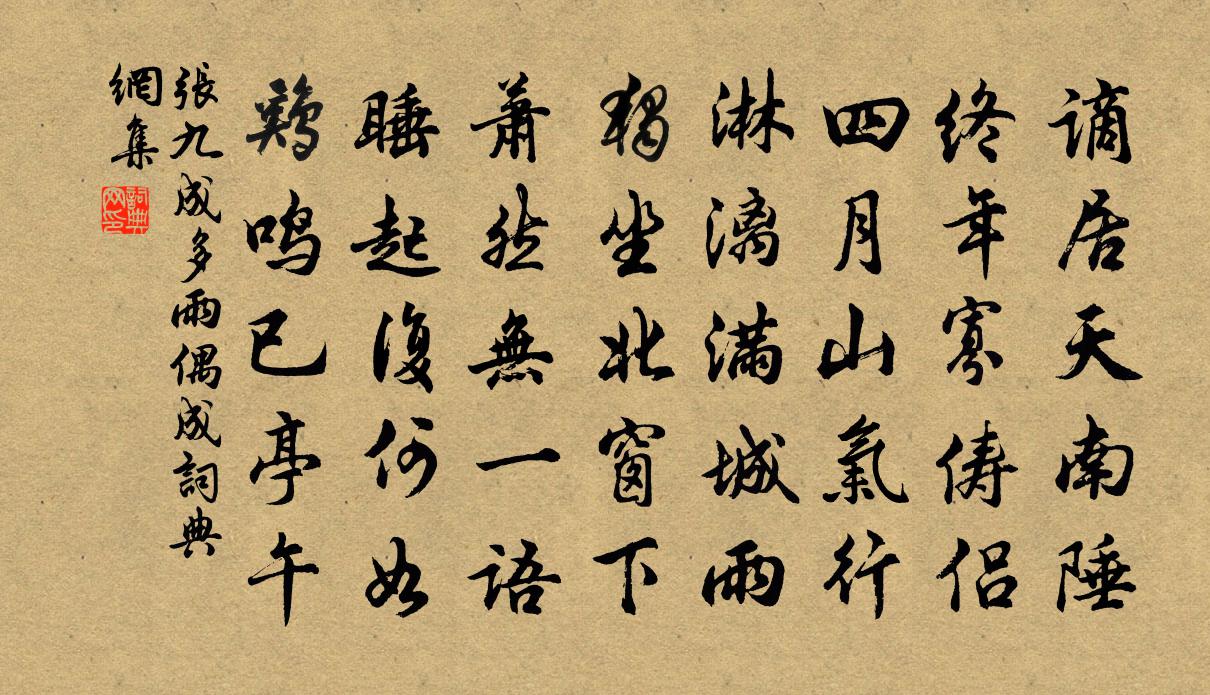 謫居天南陲
終年寡儔侶
四月山氣行
淋漓滿城雨
獨坐北窗下
蕭然無一語
睡起復何如
鷄鳴已亭午
張九成多雨偶成詞典
網集
詞典網印